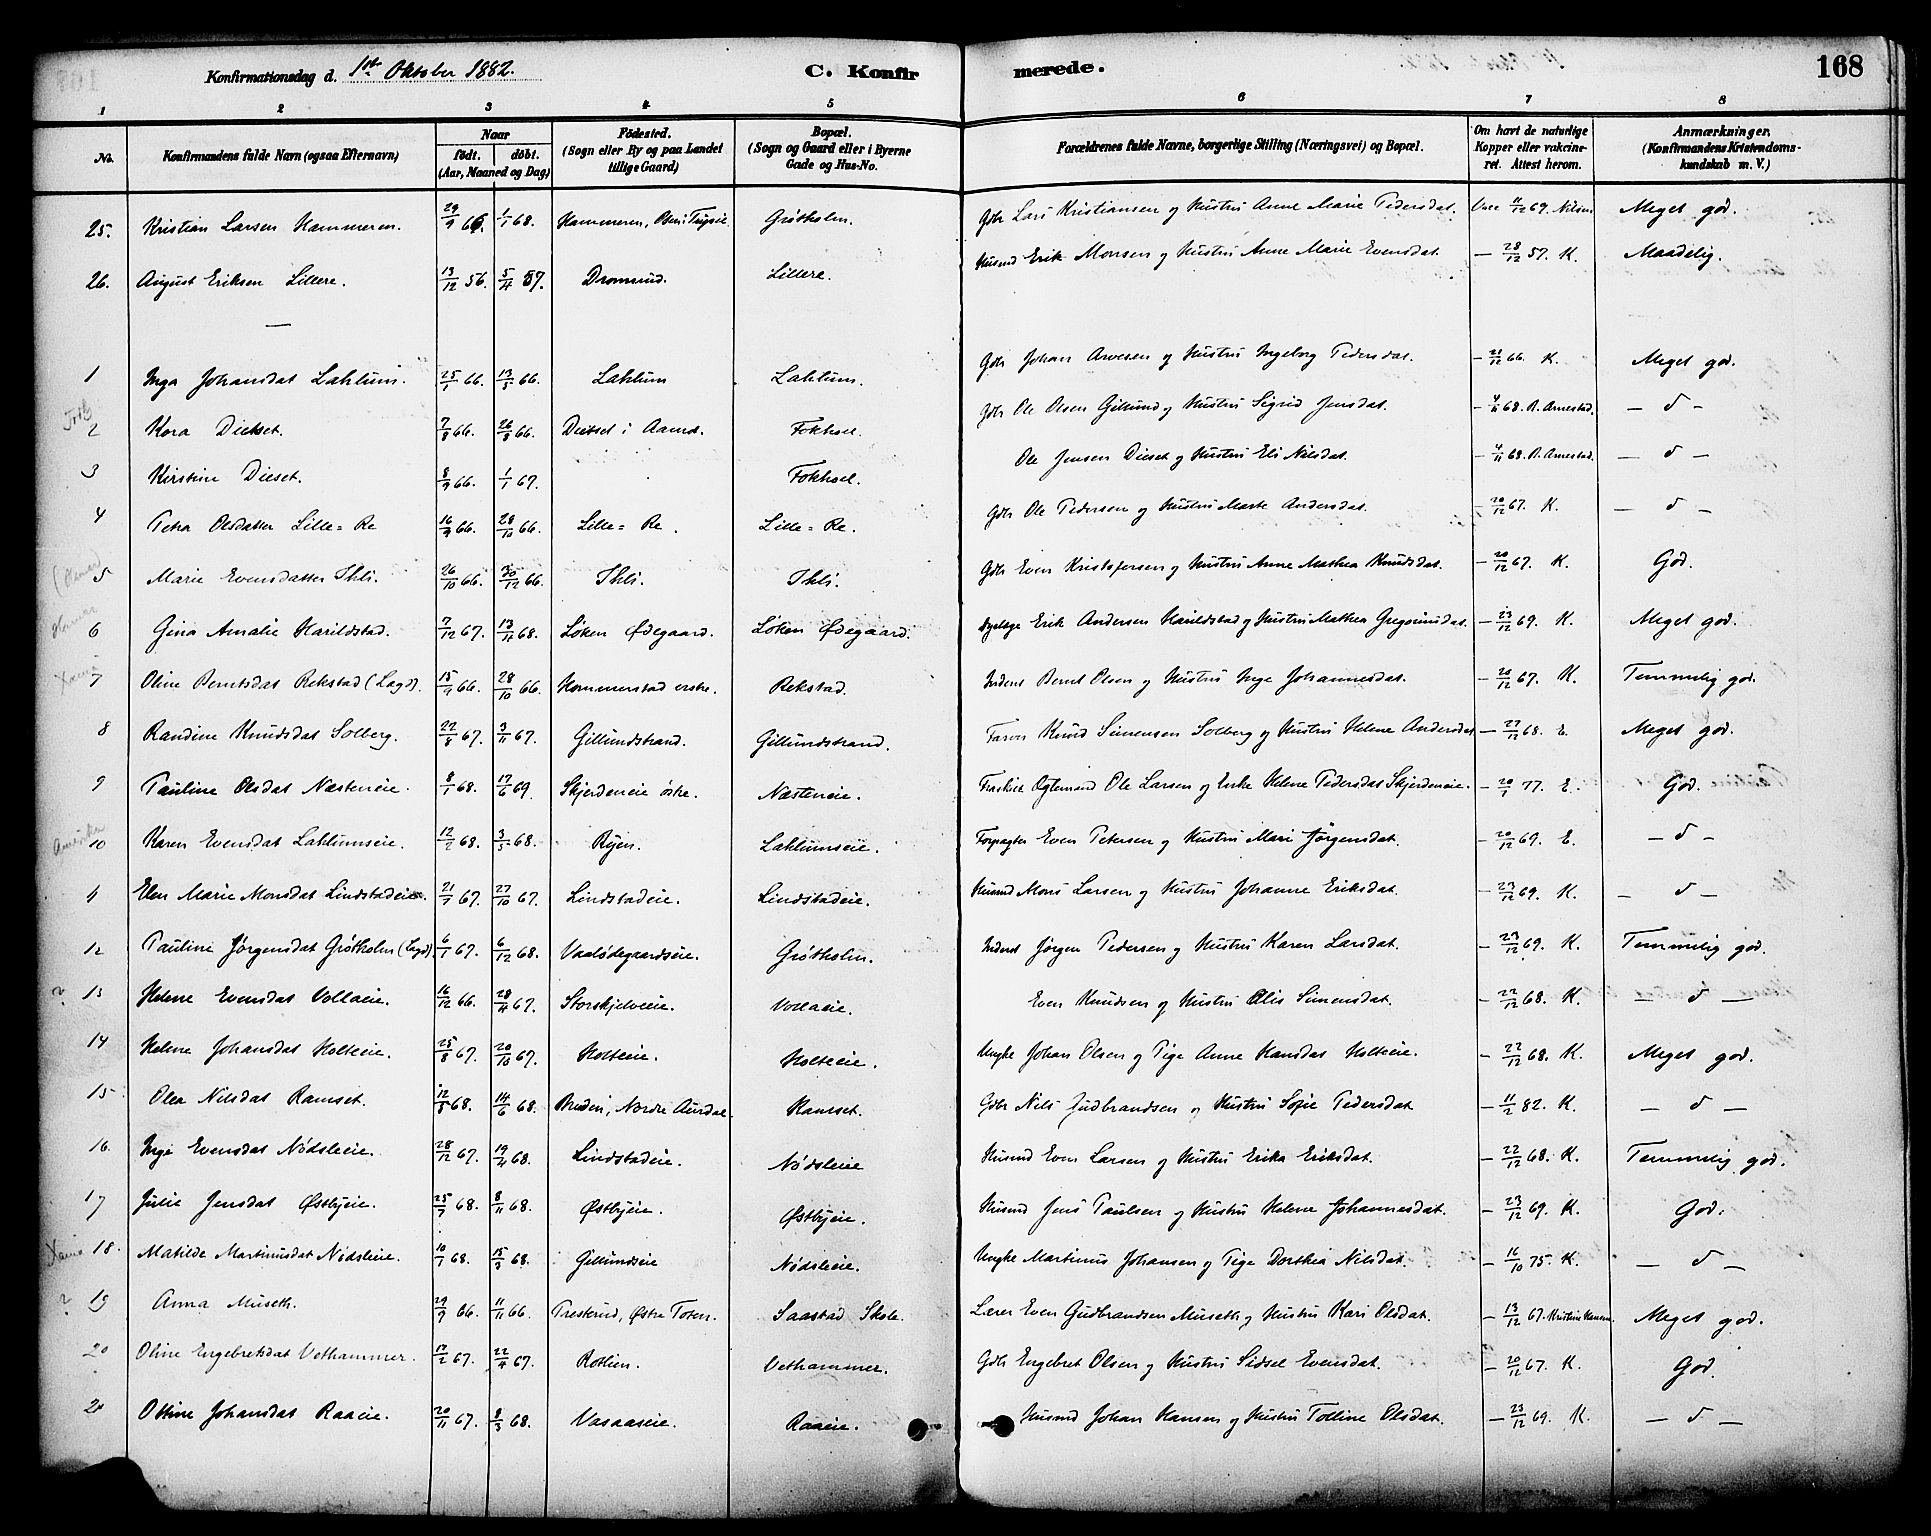 Konfirmationsdag d. 1ste Oktober 1882. C. Konfirmerede. 168
1 2 3 4 5 6 7 8
No. Konfirmandens fulde Navn (ogsaa Efternavn) Naar födt. döbt. (Aar, Maaned og Dag) Födested. (Sogn eller By og paa Landet tillige Gaard) Bopæl. (Sogn og Gaard eller i Byerne Gade og Hus-No. Forældrenes fulde Navne, borgerlige Stilling (Næringsvei) og Bopæl. Om havt de naturlige Kopper eller vakcineret. Attest herom. Anmærkninger. (Konfirmandens Kristendomskundskab m. V.)
25. Kristian Larsen Hammeren. 29/9 66. 1/1 68. Hammeren, Grötholm. Gdb Lars Kristiansen og Hustru Anne Marie Pedersdat. Vacc 11/12 69. Nilsen Meget god.
26. August Eriksen Lillere. 13/12 56. 5/4 57. Dromsud. Lillere. Husmd Erik Monsen og Hustru Anne Marie Evensdat. — 28/12 57. K. Maadelig.
—
1 Inga Johansdat Lahlum. 25/1 66. 13/5 66. Lahlum Lahlum. Gdb Johan Arvesen og Hustru Ingeborg Pedersdat. — 21/12 66. K. Meget god.
2 Kora Dieset. 7/8 66. 26/8 66. Dieset i Aamd. Fokhoel. Gdb Ole Olsen Gillund og Hustru Sigrid Jensdat. — 4/11 68. R. Arnestad. — d —
3 Kirstine Dieset. 8/9 66. 1/1 67. Fokhoel. Ole Jensen Dieset og Hustru Eli Nilsdat. — 4/11 68. R. Arnestad. — d —
4 Petra Olsdatter Lille=Re 16/9 66. 28/10 66. Lille=Re. Lille=Re. Gdb Ole Pedersen og Hustru Marte Andersdat. — 20/12 67. K. — d —
5 Marie Evensdatter Ihli. 26/10 66. 30/12 66. Ihli. Ihli. Gdb Even Kristofersen og Hustru Anne Mathea Knudsdat. — 20/12 67. K. God.
6 Gina Amalie Harildstad. 7/12 67. 13/4 68. Löken Ødegaard. Löken Ødegaard. Erik Andersen Harildstad og Hustru Mathea Gregoriusdat. — 23/12 69. K. Meget god.
7 Oline Berntsdat Rekstad (Lagd). 15/9 66. 28/10 66. Hommerstad östre. Rekstad. Inderst Bernt Olsen og Hustru Inge Johannesdat. — 20/12 67. K. Temmelig god.
8 Randine Knudsdat Solberg. 22/8 67. 3/11 67. Gillundstrand. Gillundstrand. Farver Knud Simensen Solberg og Hustru Helene Andersdat — 27/12 68. E. Meget god.
9 Pauline Olsdat Næsteneie. 8/1 68. 17/6 69. Skjerdeneie östre. Næsteneie. Fraskilt Ole Larsen og Enke Helene Pedersdat Skjerdeneie. — 20/1 77. E. God.
Amerika 10 Karen Evensdat Lahlumseie. 12/2 68. 3/5 68. Ryen. Lahlumseie. Forpagter Even Petersen og Hustru Mari Jörgensdat. — 20/12 69. E. — d —
11 Elen Marie Monsdat Lindstadeie. 21/7 67. 27/10 67. Lindstadeie. Lindstadeie. Husmd Mons Larsen og Hustru Johanne Eriksdat. — 23/12 69. K. — d —
12 Pauline Jörgensdat Grötholm (Lagd). 6/7 67. 6/12 68. Vaalödegaardseie. Grötholm. Inderst Jörgen Pedersen og Hustru Karen Larsdat. — 23/12 69. K. Temmelig god.
? 13 Helene Evensdat Vollaeie. 16/12 66. 28/4 67. Storskjelveeie. Vollaeie. Even Knudsen og Hustru Olis Simensdat. — 22/12 68. K. — d —
14 Helene Johansdat Holteeie. 25/8 67. 20/10 67. Holteeie. Holteeie. Ungkr Johan Olsen og Pige Anne Hansdat Holteeie. — 22/12 68. K. Meget god.
15 Olea Nilsdat Ramset. 12/5 68. 14/6 68. Bruden, Nordre Aurdal. Ramset. Gdb Nils Gudbrandsen og Hustru Sofie Pedersdat — 11/2 82. K. — d —
16. Inge Evensdat Nödsleeie. 28/12 67. 19/4 68. Lindstadeie. Nödsleeie Husmd Even Larsen og Hustru Erika Eriksdat. — 22/12 68. K. Temmelig god.
17 Julie Jensdat Østbyeie. 25/7 68. 8/11 68. Østbyeie. Østbyeie. Husmd Jens Paulsen og Hustru Helene Johannesdat. — 23/12 69. K. God.
18. Matilde Martinusdat Nödsleeie. 10/7 68. 15/9 68. Gillundseie Nödsleeie. Ungkr Martinus Johansen og Pige Dorthea Nilsdat. — 16/10 75. K. — d —
? 19 Anna Museth. 29/9 66. 11/11 66. Presterud, Østre Toten. Saastad Skole. Lærer Even Gudbrandsen Museth og Hustru Kari Olsdat. — 13/12 67. Kristine Hansen. Meget god.
20 Oline Engebretsdat Vethammer. 17/2 67. 22/4 67. Rotlien. Vethammer. Gdb Engebret Olsen og Hustru Sidsel Evensdat. — 20/12 67. K. God.
20 Ottine Johansdat Raaeie. 20/11 67. 8/3 68. Vasaaseie. Raaeie. Husmd Johan Hansen og Hustru Tolline Olsdat. — 23/12 69. K. — d —